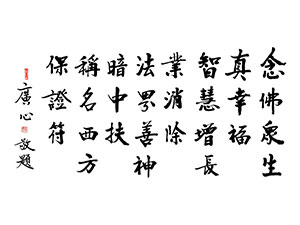 念佛眾生
真幸福
智慧增長
業消除
法界善神
暗中扶
稱名西方
保證符
廣心敬題